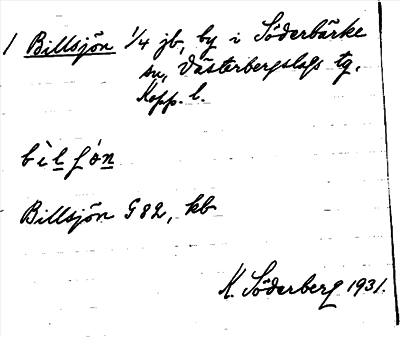 1 Billsjön 1/4 jb, by i Söderbärke
sn, Västerbergslags tg.
Kopp. l.
bìlʃón
Billsjön G 82, kb
K. Söderberg 1931.